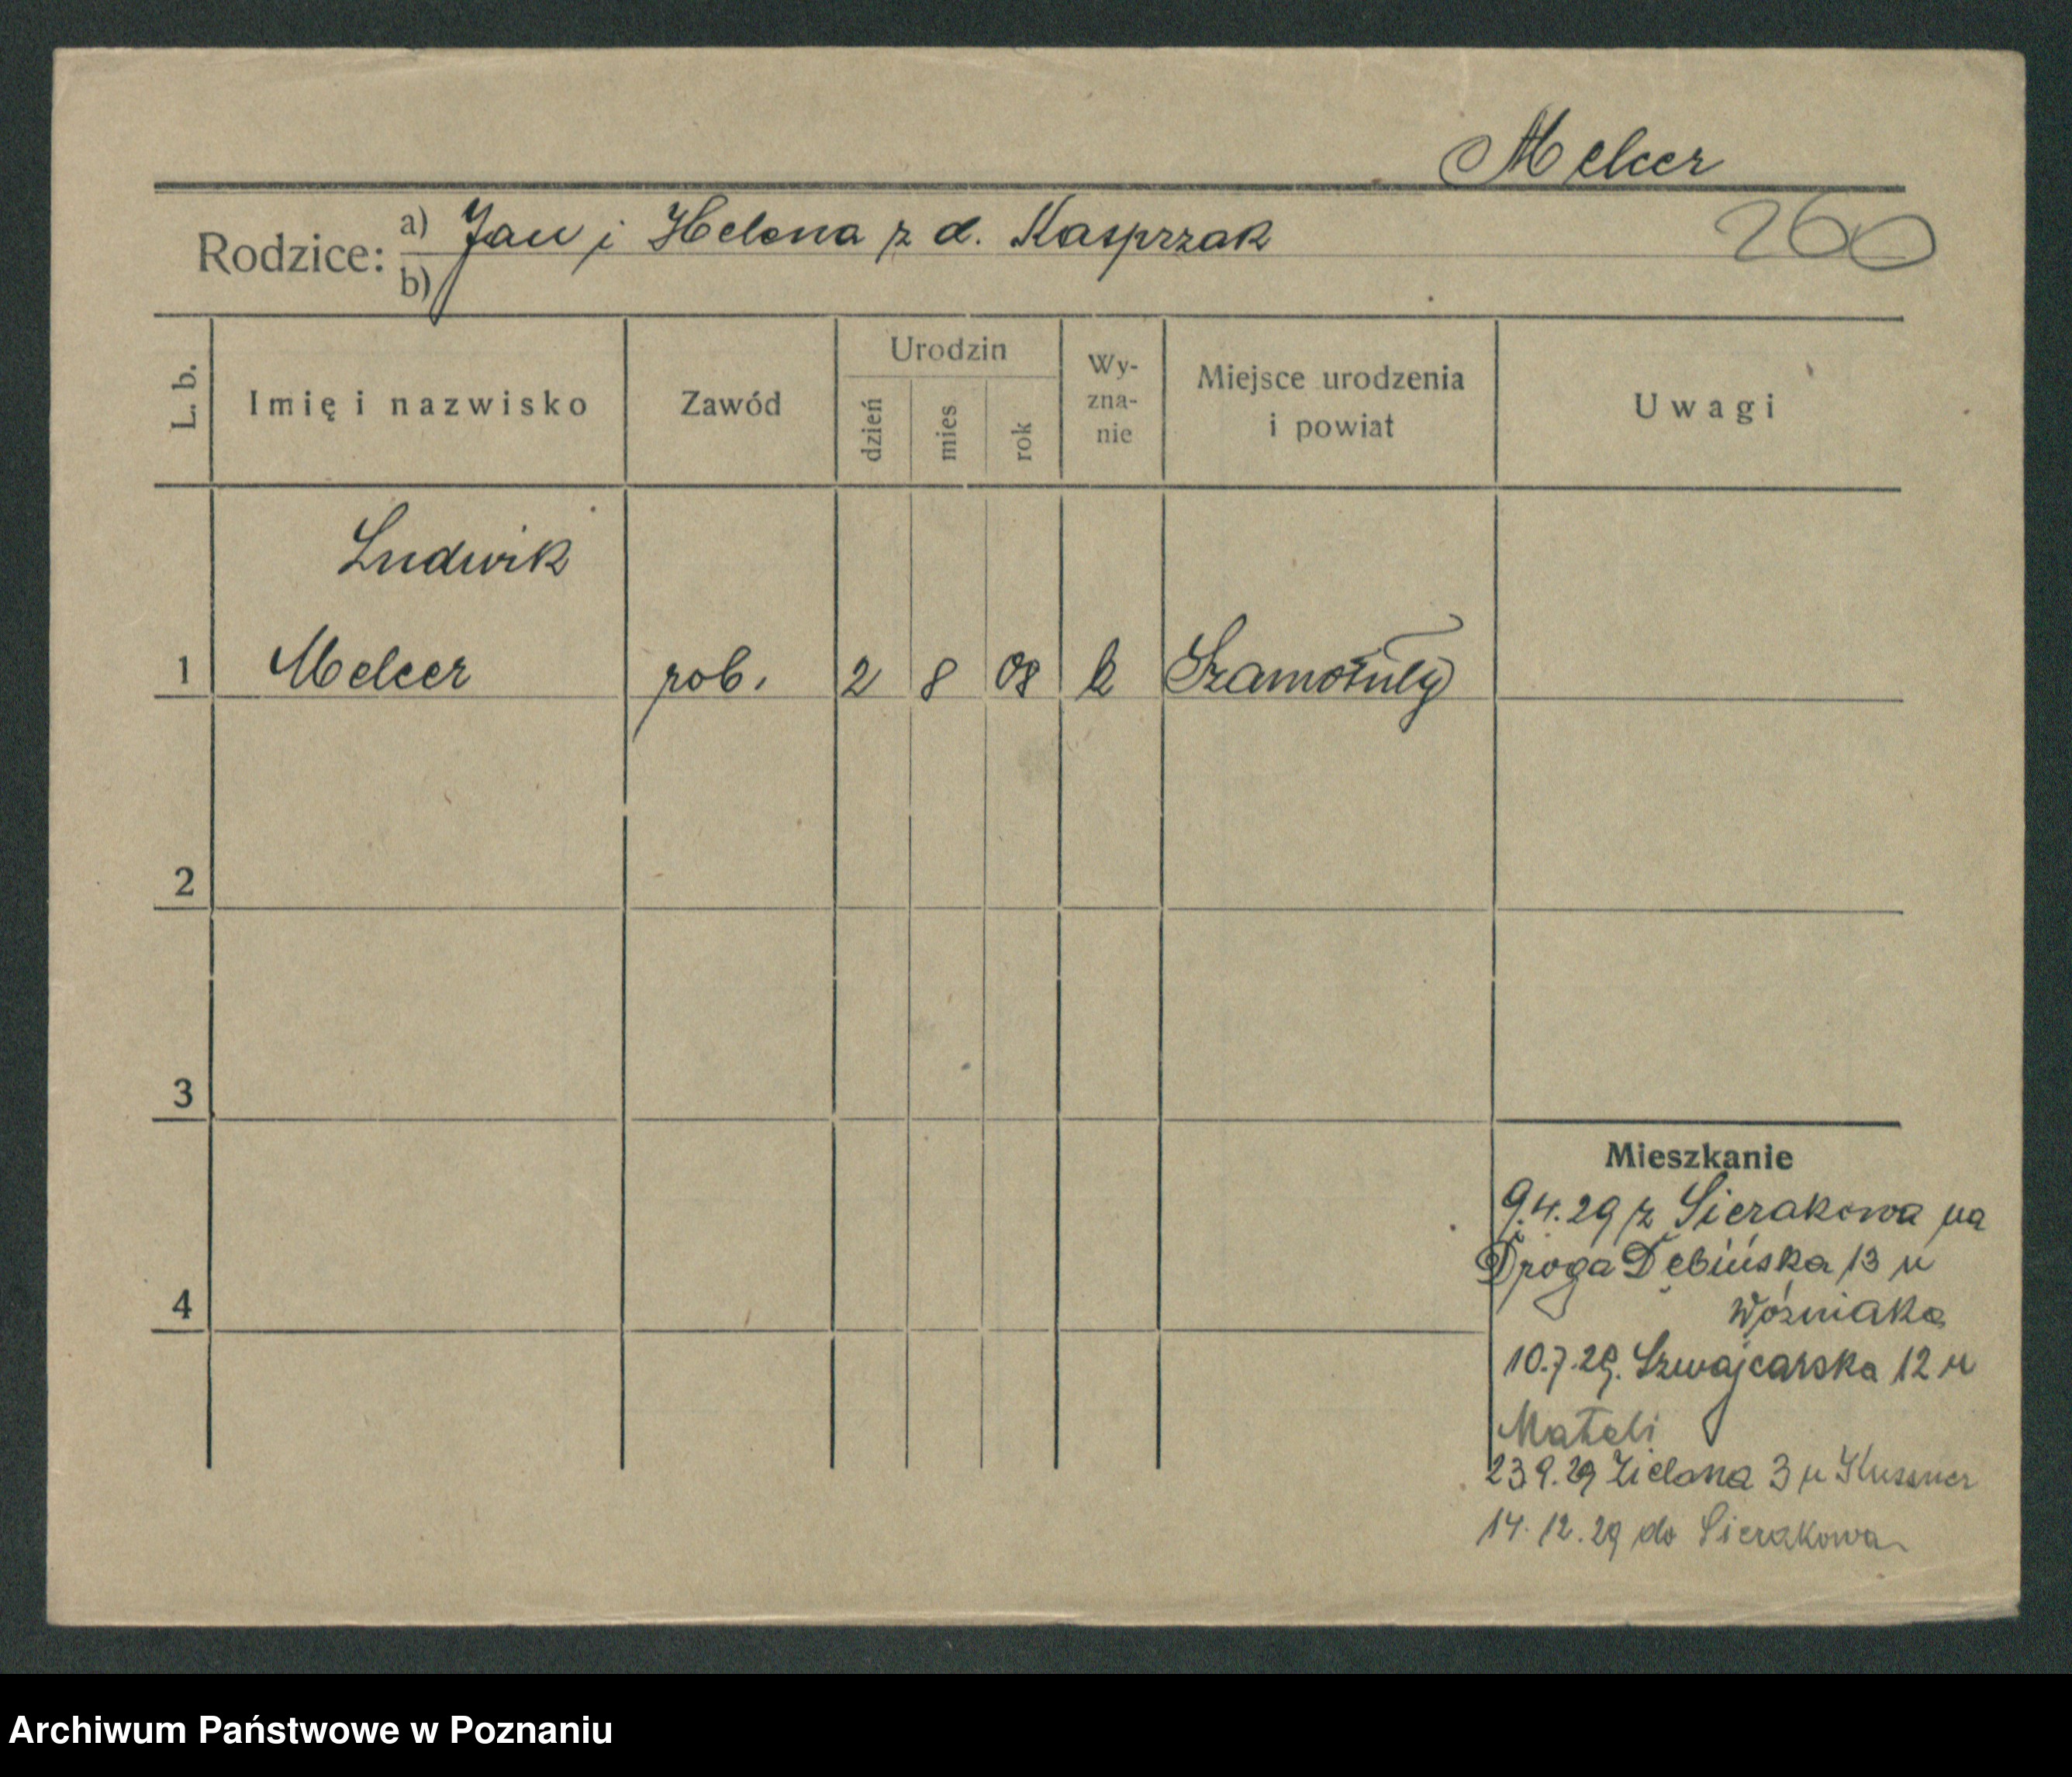 Melcer
260
Rodzice: a) Jan i Helena z d. Kasprzak
b)
L. b.
Imię i nazwisko
Zawód
Urodzin
dzień
mies
rok
Wy-
zna-
nie
Miejsce urodzenia
i powiat
Uwagi
Ludwik
1 Melcer rob. 2 8 08 k Szamotuły
2
3
4
Mieszkanie
9.4.29 z Sierakowa na
Droga Dębińska 13 u
Woźniaka
10.7.29. Szwajcarska 12 u
Matebi
23.9.29 Zielona 3 u Kussner
14.12.29 do Sierakowa
Archiwum Państwowe w Poznaniu